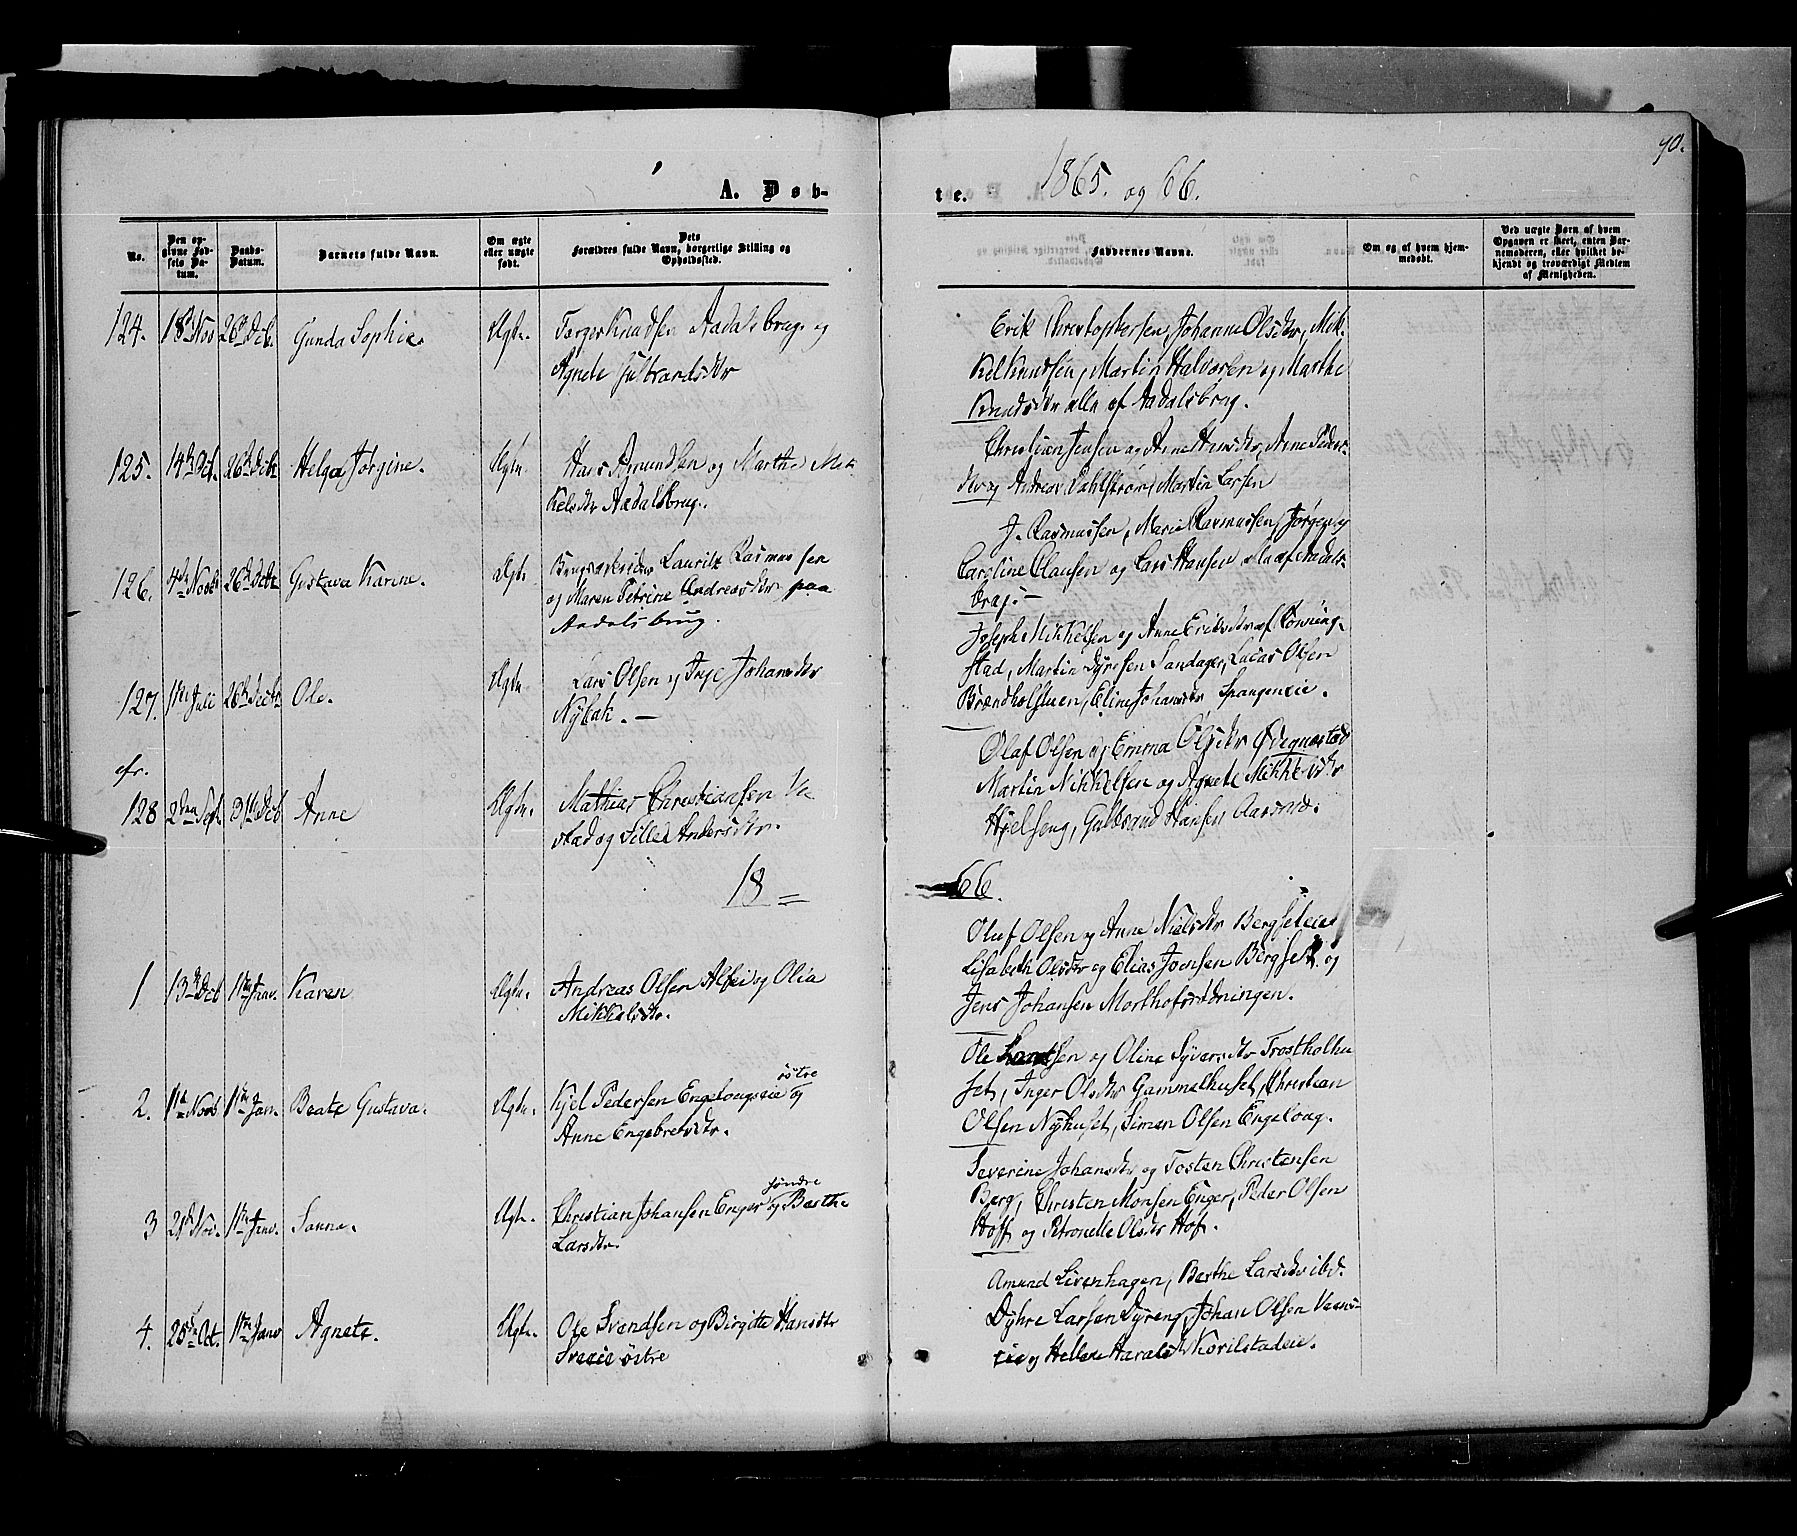 90.
A. Døb-
te. 1865. og 66.
No.
Den opgivne Fødsels Datum.
Daabs-Datum.
Barnets fulde Navn.
Om ægte eller uægte født.
Dets Forældres fulde Navn, borgerlige Stilling og Opholdssted.
Faddernes Navne.
Om og af hvem hjemmedøbt.
Ved uægte Børn af hvem Opgaven er skeet, enten Barnemoderen, eller hvilket bekjendt og troværdigt Medlem af Menigheden.
124. 18de Nov 26de Decb. Gunda Sophie. Ægte. Torger Knudsen Aadalsbrug og
Agnete Gulbrandsdtr
Erik Christophersen, Johanne Olsdtr, Mik-
kel Knudsen, Martin Halvorsen og Marthe
Knudsdtr alle af Aadalsbrug.
125. 14de Dec. 26de Decb Helga Jørgine. Ægte Hans Amundsen og Marthe Mik-
kelsdtr Aadalsbrug.
Christian Jensen og Anne Hansdtr, Anne Peders-
dtr og Andreas Dahlstrøm, Martin Larsen
126. 4de Novb 26de Decbr Gustava Karine. Ægte Brugsarbeider Laurits Rasmussen
og Maren Petrine Andreasdtr paa
Aadalsbrug.
J. Rasmussen, Marie Rasmussen, Jørgen og
Caroline Clausen og Lars Hansen alle af Aadals-
brug.—
127. 1ste Juli 26de Decbr Ole. Ægte Lars Olsen og Inge Johansdtr
Nybak.—
Joseph Mikkelsen og Anne Eriksdtr af Rønning-
stad, Martin Syversen Sandager, Lucas Olsen
Brændholstuen, Eline Johansdtr Spangeneie.
efr.
128 2den Sept. 31te Decb Anne Ægte. Mathias Christiansen Ve-
stad og Sille Andersdtr.
Olaf Olsen og Emma Olsdtr Ødegnestad
Martin Mikkelsen og Agnete Mikkelsdtr
Hjelseng, Gulbrand Hansen Aasness.
18=
66.
1 13de Decb 1ste Janv. Karen Ægte. Andreas Olsen Alfei og Olia
Mikkelsdtr.
Oluf Olsen og Anne Nielsdtr Bergseteie
Lisabeth Olsdtr og Elias Joensen Bergset og
Jens Johansen Morthofsrødningen.
2. 1ste Novb 1ste Jan. Beate Gustava. Ægte. Kjel Pedersen Engelougseie østre og
Anne Engebretsdtr.
Ole Larsen og Oline Syversdtr Frostholhu-
set, Inger Olsdtr Gammelhuset, Christian
Olsen Nyhuset, Simen Olsen Engeloug.
3 21de Nov. 1ste Janv. Sanna. Ægte. Christian Johansen Enger søndre og Berthe
Larsdtr.
Severine Johansdtr og Tosten Christensen
Berg, Christen Monsen Enger, Peder Olsen
Hoff og Petronelle Olsdtr Hof.
4. 25de Oct. 1ste Janv Agnete. Ægte. Ole Svendsen og Birgitte Hansdtr
Sveeie østre
Amund Livenhagen, Berthe Larsdtr ibd.
Dyhre Larsen Dyreng, Johan Olsen
og Hellene Haralsdtr Korilstadeie.